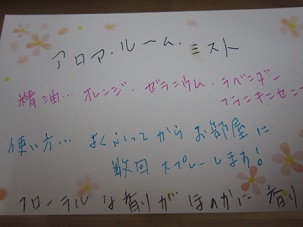 アロマ・ルーム・ミスト
精油… オレンジ・ゼラニウム・ラベンダー
フランキンセンス
使い方… よくふってから お部屋に
数回 スプレーします!
フローラルな香りが ほのかに 香り